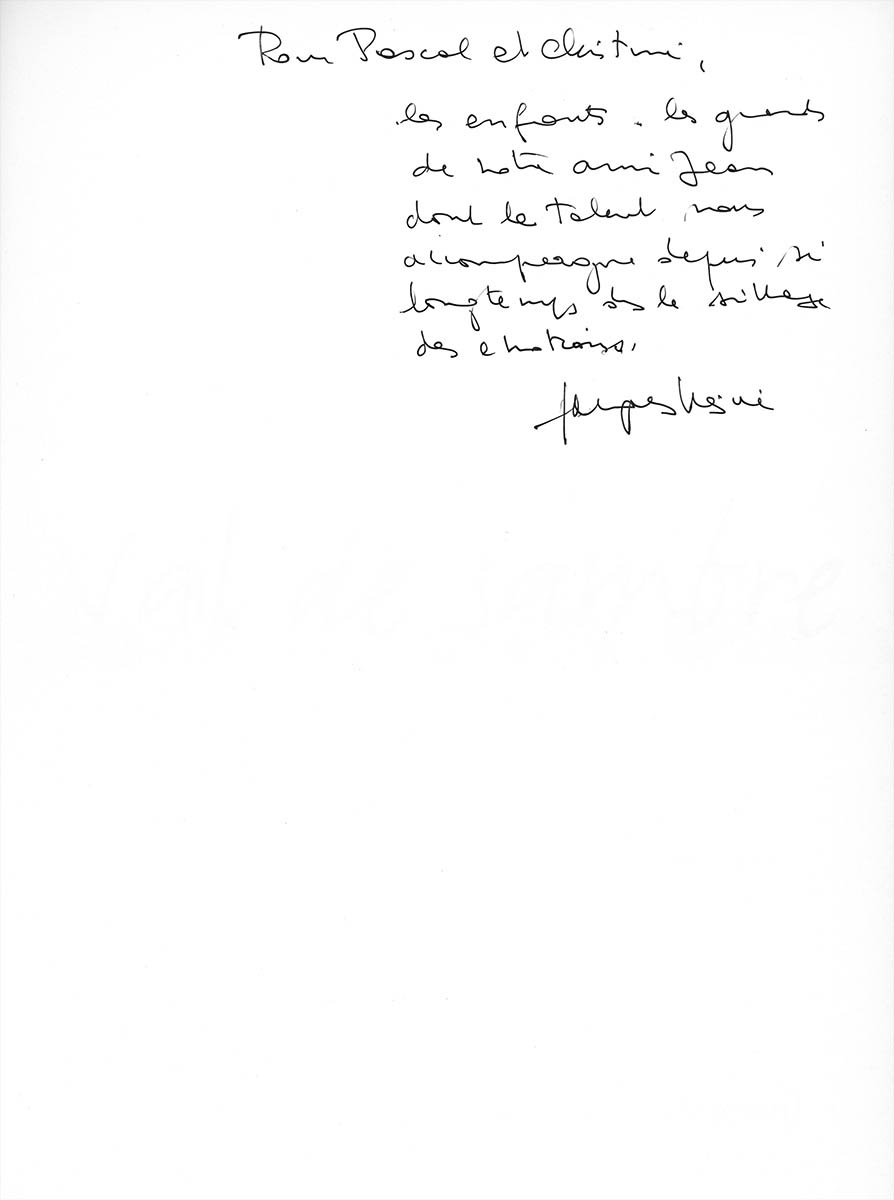 Pour Pascal et Christine,
les enfants . les grands
de notre ami Jean
dont le talent nous
accompagne depuis si
longtemps ds le sillage
des émotions.
Jacques
Val de Sambre